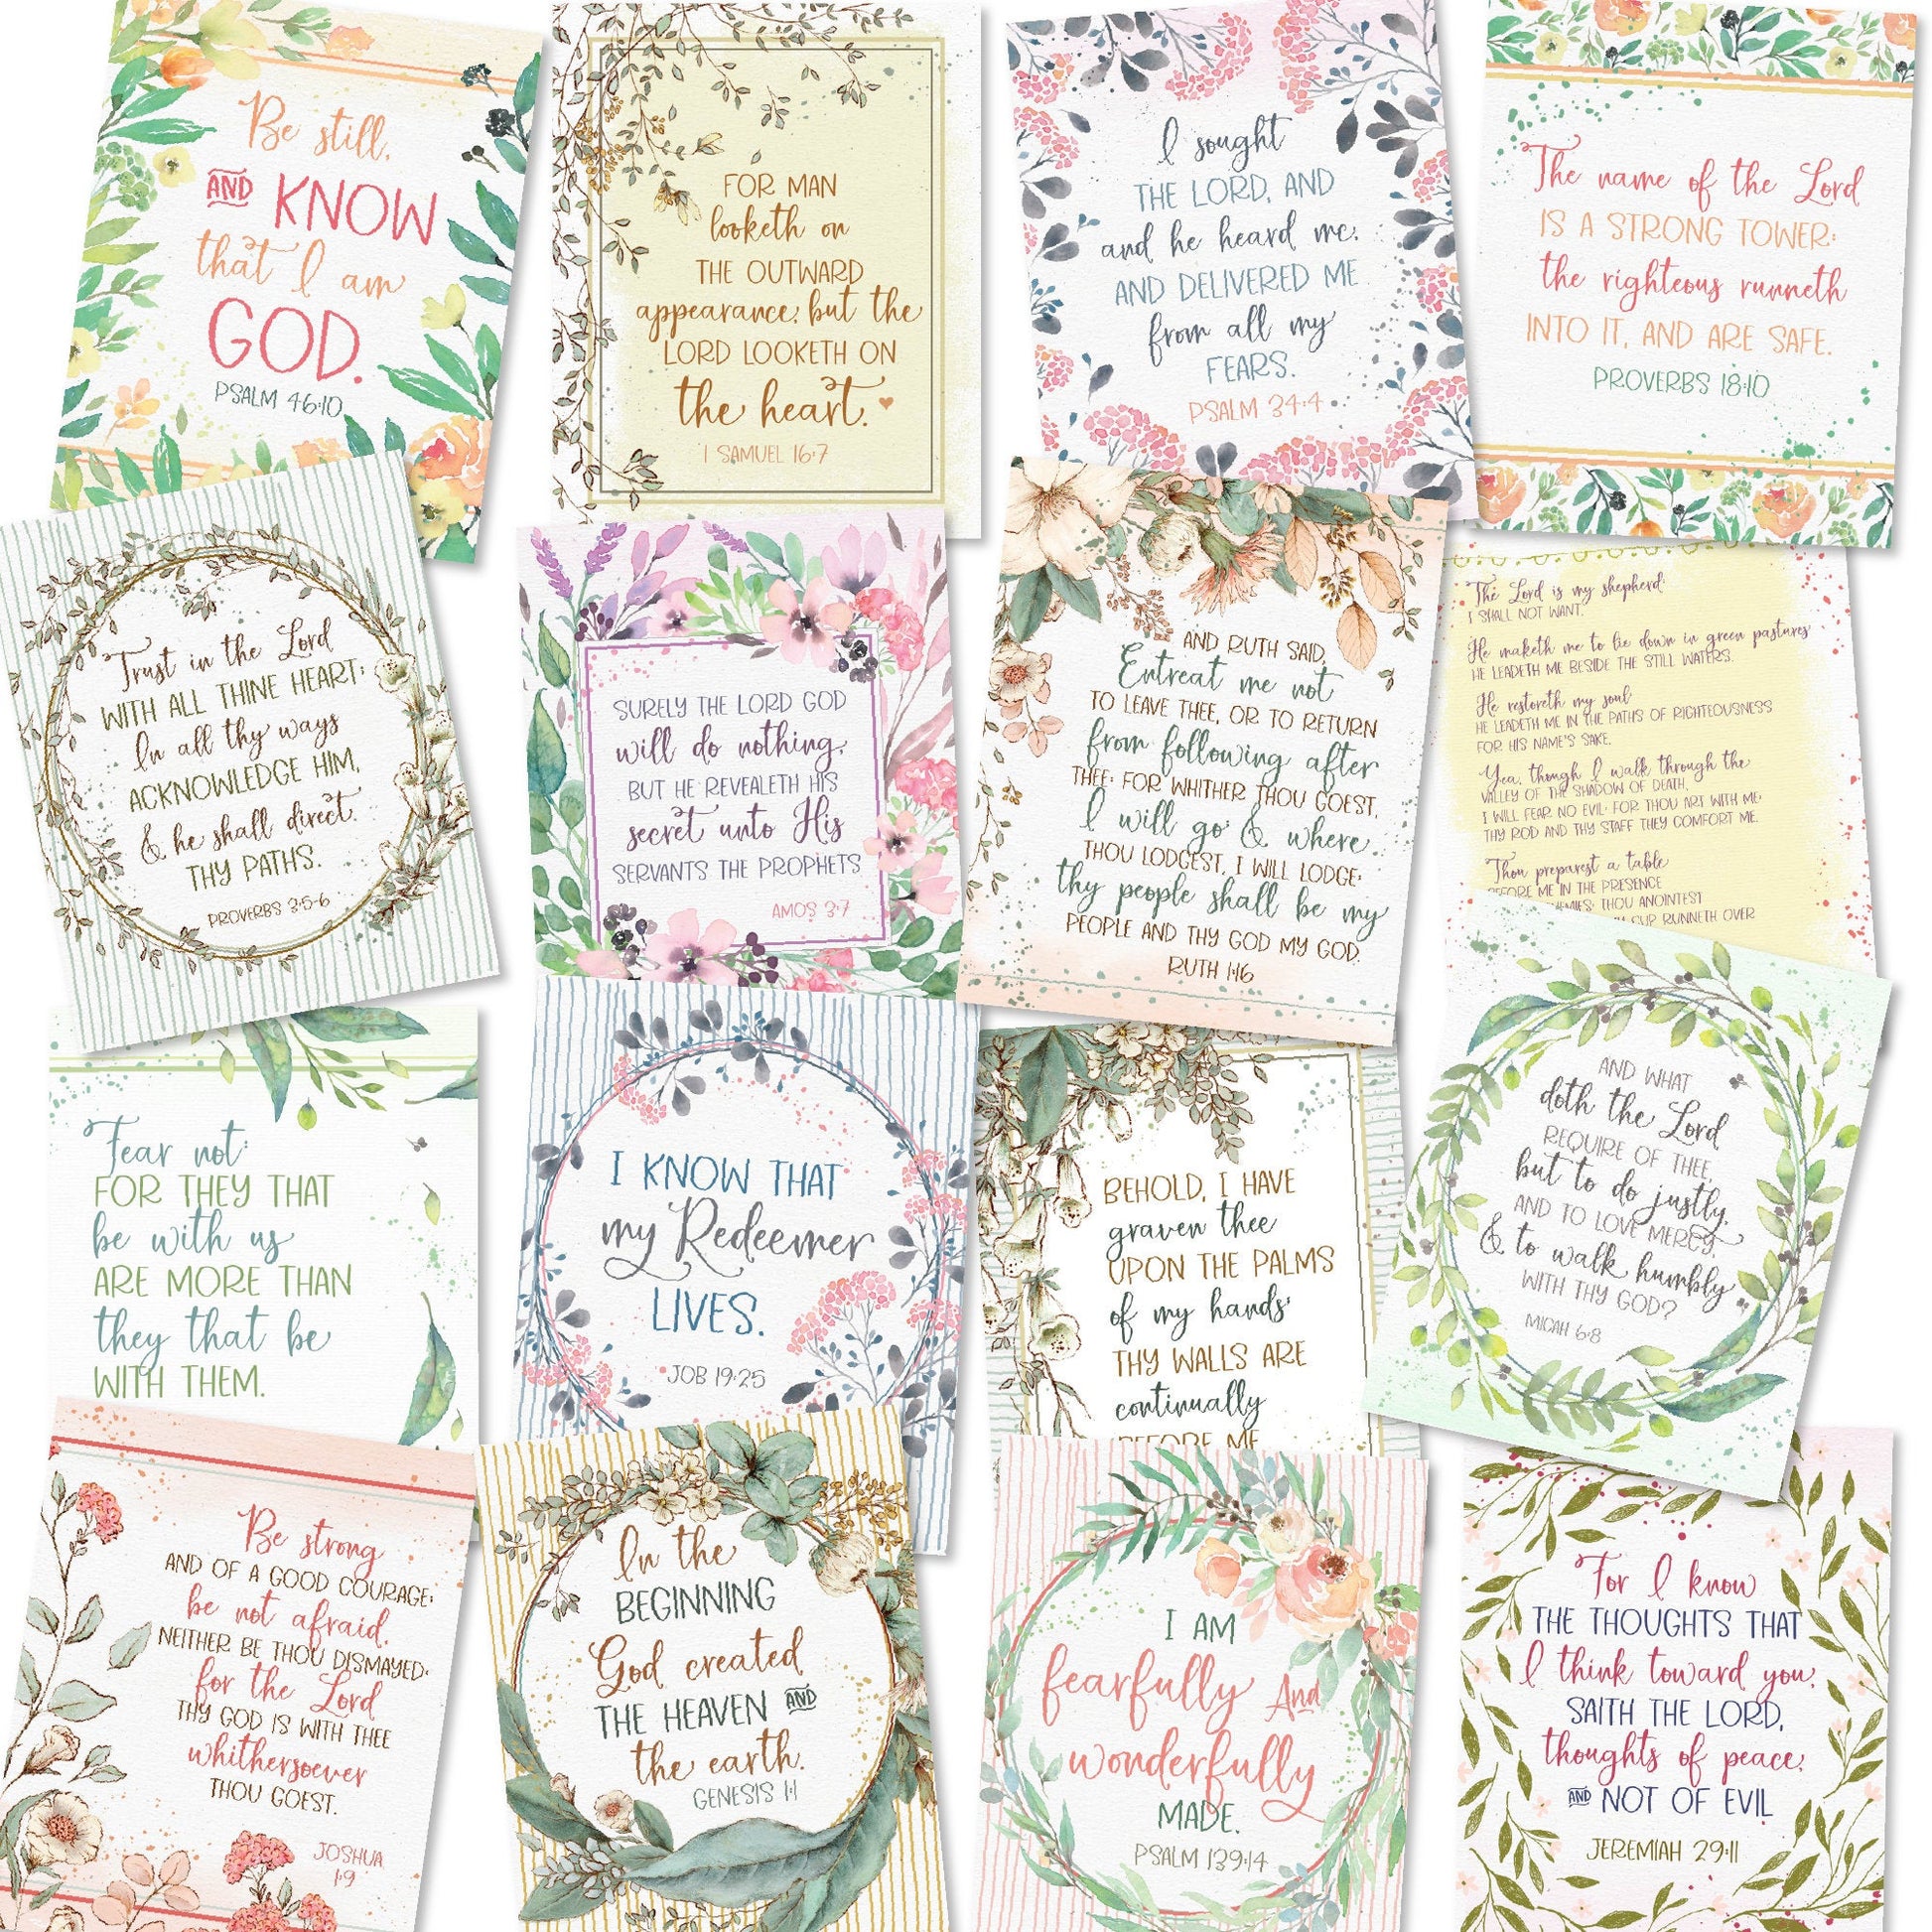 Be still,
AND KNOW
that I am
GOD.
PSALM 46:10
FOR MAN
looketh on
THE OUTWARD
appearance; but the
LORD LOOKETH ON
the heart.
1 SAMUEL 16:7
I sought
THE LORD, AND
and he heard me,
AND DELIVERED ME
from all my
FEARS.
PSALM 34:4
The name of the Lord
IS A STRONG TOWER:
the righteous runneth
INTO IT, AND ARE SAFE.
PROVERBS 18:10
Trust in the Lord
WITH ALL THINE HEART;
In all thy ways
ACKNOWLEDGE HIM,
& he shall direct
THY PATHS.
PROVERBS 3:5-6
SURELY THE LORD GOD
will do nothing,
BUT HE REVEALETH HIS
secret unto His
SERVANTS THE PROPHETS
AMOS 3:7
AND RUTH SAID,
Entreat me not
TO LEAVE THEE, OR TO RETURN
from following after
THEE: FOR WHITHER THOU GOEST,
I will go; & where
THOU LODGEST, I WILL LODGE:
thy people shall be my
PEOPLE AND THY GOD MY GOD.
RUTH 1:16
The Lord is my shepherd;
I SHALL NOT WANT.
He maketh me to lie down in green pastures;
HE LEADETH ME BESIDE THE STILL WATERS.
He restoreth my soul
HE LEADETH ME IN THE PATHS OF RIGHTEOUSNESS
FOR HIS NAME'S SAKE.
Yea, though I walk through the
VALLEY OF THE SHADOW OF DEATH,
I WILL FEAR NO EVIL: FOR THOU ART WITH ME;
THY ROD AND THY STAFF THEY COMFORT ME.
Thou preparest a table
BEFORE ME IN THE PRESENCE
THOU ANOINTEST
RUNNETH OVER
Fear not:
FOR THEY THAT
be with us
ARE MORE THAN
they that be
WITH THEM.
I KNOW THAT
my Redeemer
LIVES.
JOB 19:25
BEHOLD, I HAVE
graven thee
UPON THE PALMS
of my hands;
THY WALLS ARE
continually
BEFORE ME
AND WHAT
doth the Lord
REQUIRE OF THEE,
but to do justly,
AND TO LOVE MERCY,
& to walk humbly
WITH THY GOD?
MICAH 6:8
Be strong
AND OF A GOOD COURAGE;
be not afraid,
NEITHER BE THOU DISMAYED:
for the Lord
THY GOD IS WITH THEE
whithersoever
THOU GOEST.
JOSHUA
1:9
In the
BEGINNING
God created
THE HEAVEN AND
the earth.
GENESIS 1:1
I AM
fearfully And
wonderfully
MADE.
PSALM 139:14
For I know
THE THOUGHTS THAT
I think toward you,
SAITH THE LORD,
thoughts of peace,
AND NOT OF EVIL
JEREMIAH 29:11